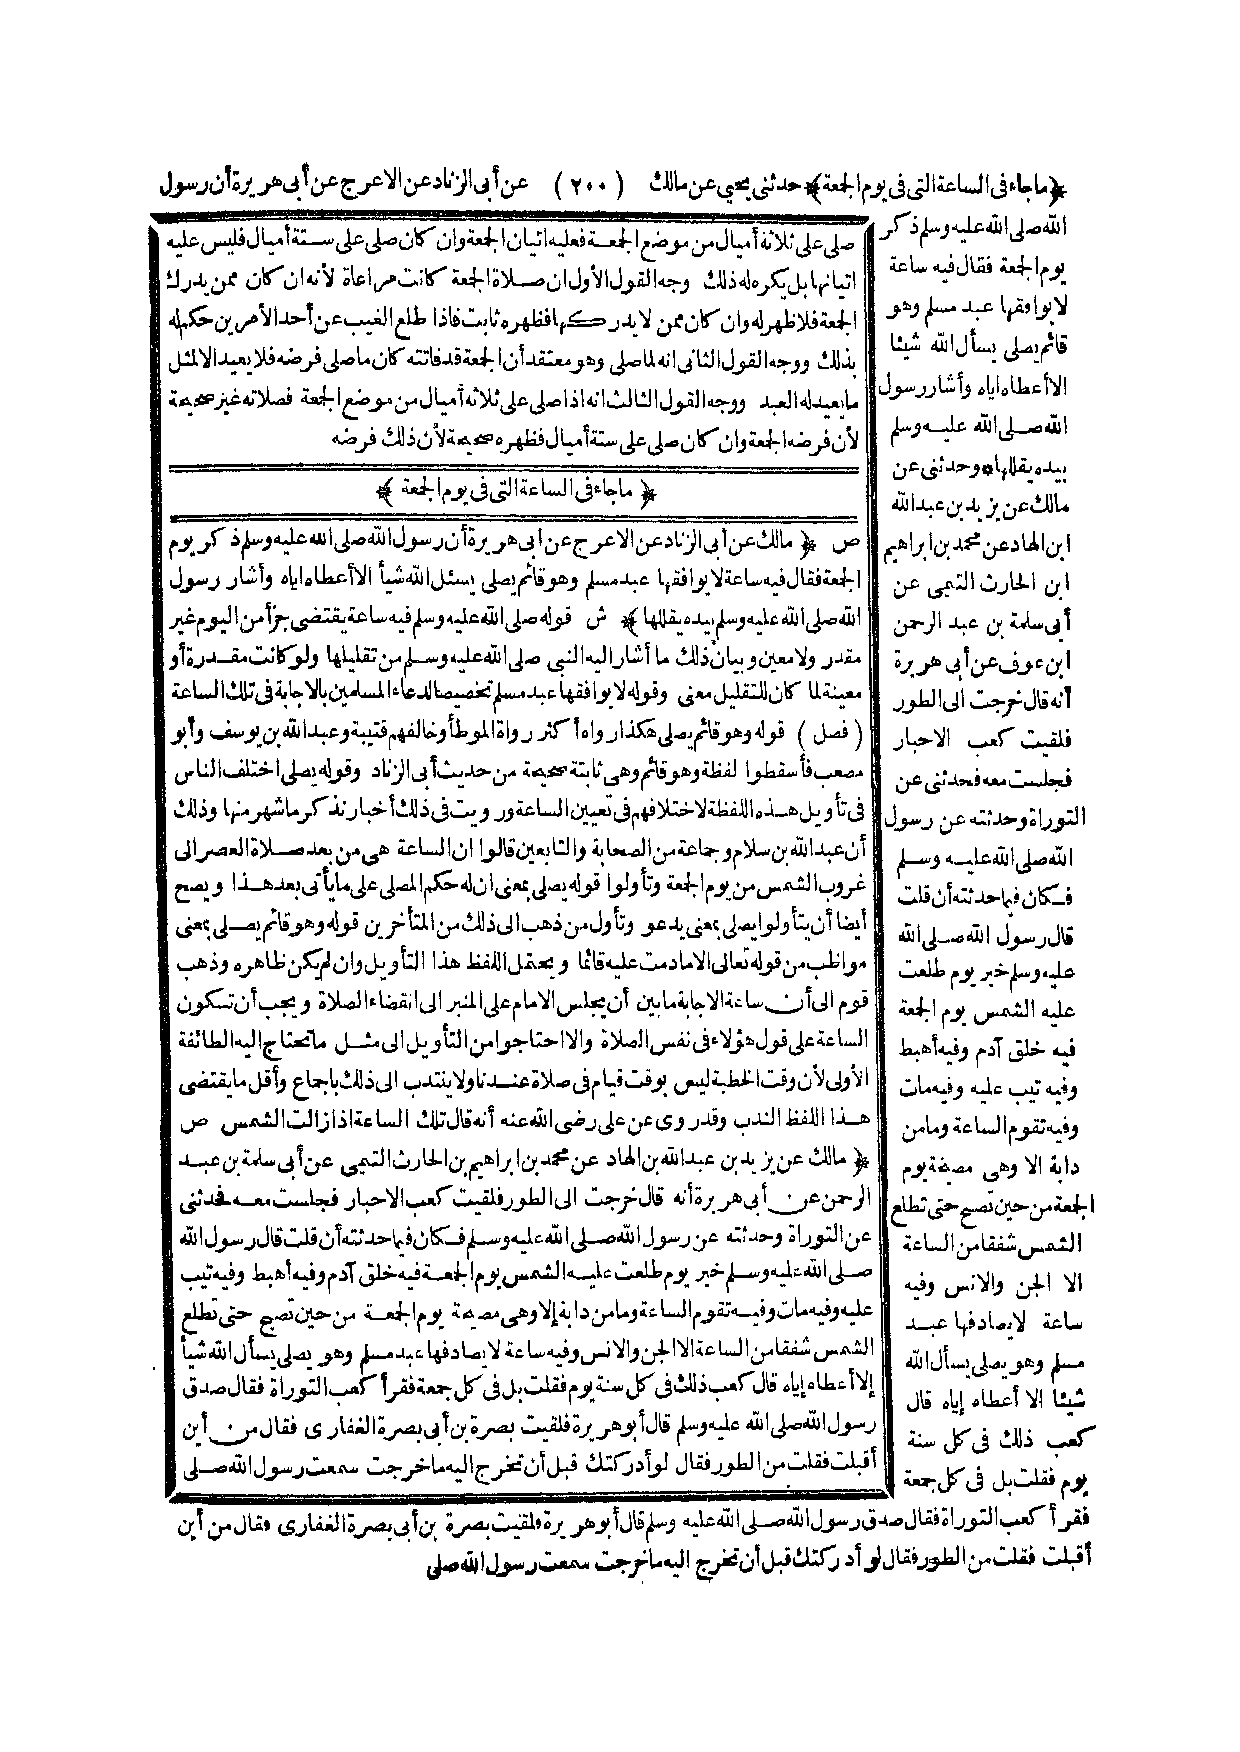 ﴿ماجاء فى الساعة التى فى يوم الجمعة﴾ حدثنى يحيى عن مالك (٢٠٠) عن أبى الزناد عن الاعرج عن أبى هريرة أن رسول
الله صلى الله عليه وسلم ذكر
يوم الجمعة فقال فيه ساعة
لا يوافقها عبد مسلم وهو
قائم يصلى يسأل الله شيئا
الا أعطاه اياه وأشار رسول
الله صلى الله عليه وسلم
بيده يقللها * وحدثنى عن
مالك عن يزيد بن عبد الله
ابن الهاد عن محمد بن ابراهيم
ابن الحارث التيمى عن
أبى سلمة بن عبد الرحمن
ابن عوف عن أبى هريرة
أنه قال خرجت الى الطور
فلقيت كعب الاحبار
فجلست معه فحدثنى عن
التوراة وحدثته عن رسول
الله صلى الله عليه وسلم
فكان فيما حدثته أن قلت
قال رسول الله صلى الله
عليه وسلم خير يوم طلعت
عليه الشمس يوم الجمعة
فيه خلق آدم وفيه أهبط
وفيه تيب عليه وفيه مات
وفيه تقوم الساعة وما من
دابة الا وهى مصيخة يوم
الجمعة من حين تصبح حتى تطلع
الشمس شفقا من الساعة
الا الجن والانس وفيه
ساعة لا يصادفها عبد
مسلم وهو يصلى يسأل الله
شيئا الا أعطاه إياه قال
كعب ذلك فى كل سنة
يوم فقلت بل فى كل جمعة
فقرأ كعب التوراة فقال صدق رسول الله صلى الله عليه وسلم قال أبو هريرة فلقيت بصرة بن أبى بصرة الغفارى فقال من أين
أقبلت فقلت من الطور فقال لو أدركتك قبل أن تخرج اليه ما خرجت سمعت رسول الله صلى
صلى على ثلاثة أميال من موضع الجمعة فعليه اتيان الجمعة وان كان صلى على ستة أميال فليس عليه
اتيانها بل يكره له ذلك وجه القول الأول ان صلاة الجمعة كانت مراعاة لأنه ان كان ممن يدرك
الجمعة فلا ظهر له وان كان ممن لا يدركها فظهره ثابت فاذا طلع الغيب عن أحد الأمرين حكم له
بذلك ووجه القول الثانى انه لما صلى وهو معتقد أن الجمعة قد فاتته كان ما صلى فرضه فلا يعيد الا لمثل
ما يعيد له العبد ووجه القول الثالث انه اذا صلى على ثلاثة أميال من موضع الجمعة فصلاته غير صحيحة
لأن فرضه الجمعة وان كان صلى على ستة أميال فظهره صحيحة لأن ذلك فرضه
﴿ ماجاء فى الساعة التى فى يوم الجمعة ﴾
ص ﴿ مالك عن أبى الزناد عن الاعرج عن أبى هريرة أن رسول الله صلى الله عليه وسلم ذكر يوم
الجمعة فقال فيه ساعة لا يوافقها عبد مسلم وهو قائم يصلى يسئل الله شيأ الا أعطاه اياه وأشار رسول
الله صلى الله عليه وسلم بيده يقللها ﴾ ش قوله صلى الله عليه وسلم فيه ساعة يقتضى جزأ من اليوم غير
مقدر ولا معين وبيان ذلك ما أشار اليه النبى صلى الله عليه وسلم من تقليلها ولو كانت مقدرة أو
معينة لما كان للتقليل معنى وقوله لا يوافقها عبد مسلم تخصيصا لدعاء المسلمين بالاجابة فى تلك الساعة
( فصل ) قوله وهو قائم يصلى هكذا رواه أكثر رواة الموطأ وخالفهم قتيبة وعبد الله بن يوسف وأبو
مصعب فأسقطوا لفظة وهو قائم وهى ثابتة صحيحة من حديث أبى الزناد وقوله يصلى اختلف الناس
فى تأويل هذه اللفظة لاختلافهم فى تعيين الساعة ورويت فى ذلك أخبار نذكر ما شهر منها وذلك
أن عبد الله بن سلام وجماعة من الصحابة والتابعين قالوا ان الساعة هى من بعد صلاة العصر الى
غروب الشمس من يوم الجمعة وتأولوا قوله يصلى بمعنى ان له حكم المصلى على ما يأتى بعد هذا ويصح
أيضا أن يتأولوا يصلى بمعنى يدعو وتأول من ذهب الى ذلك من المتأخرين قوله وهو قائم يصلى بمعنى
مواظب من قوله تعالى الا مادمت عليه قائما ويحتمل اللفظ هذا التأويل وان لم يكن ظاهره وذهب
قوم الى أن ساعة الاجابة ما بين أن يجلس الامام على المنبر الى انقضاء الصلاة ويجب أن تكون
الساعة على قول هؤلاء فى نفس الصلاة والا احتاجوا من التأويل الى مثل ما تحتاج اليه الطائفة
الأولى لأن وقت الخطبة ليس بوقت قيام فى صلاة عندنا ولا ينتدب الى ذلك باجماع وأقل ما يقتضى
هذا اللفظ الندب وقد روى عن على رضى الله عنه أنه قال تلك الساعة اذا زالت الشمس ص
﴿ مالك عن يزيد بن عبد الله بن الهاد عن محمد بن ابراهيم بن الحارث التيمى عن أبى سلمة بن عبد
الرحمن عن أبى هريرة أنه قال خرجت الى الطور فلقيت كعب الاحبار فجلست معه فحدثنى
عن التوراة وحدثته عن رسول الله صلى الله عليه وسلم فكان فيما حدثته أن قلت قال رسول الله
صلى الله عليه وسلم خير يوم طلعت عليه الشمس يوم الجمعة فيه خلق آدم وفيه أهبط وفيه تيب
عليه وفيه مات وفيه تقوم الساعة وما من دابة إلا وهى مصيخة يوم الجمعة من حين تصبح حتى تطلع
الشمس شفقا من الساعة الا الجن والانس وفيه ساعة لا يصادفها عبد مسلم وهو يصلى يسأل الله شيأ
إلا أعطاه إياه قال كعب ذلك فى كل سنة يوم فقلت بل فى كل جمعة فقرأ كعب التوراة فقال صدق
رسول الله صلى الله عليه وسلم قال أبو هريرة فلقيت بصرة بن أبى بصرة الغفارى فقال من أين
أقبلت فقلت من الطور فقال لو أدركتك قبل أن تخرج اليه ما خرجت سمعت رسول الله صلى